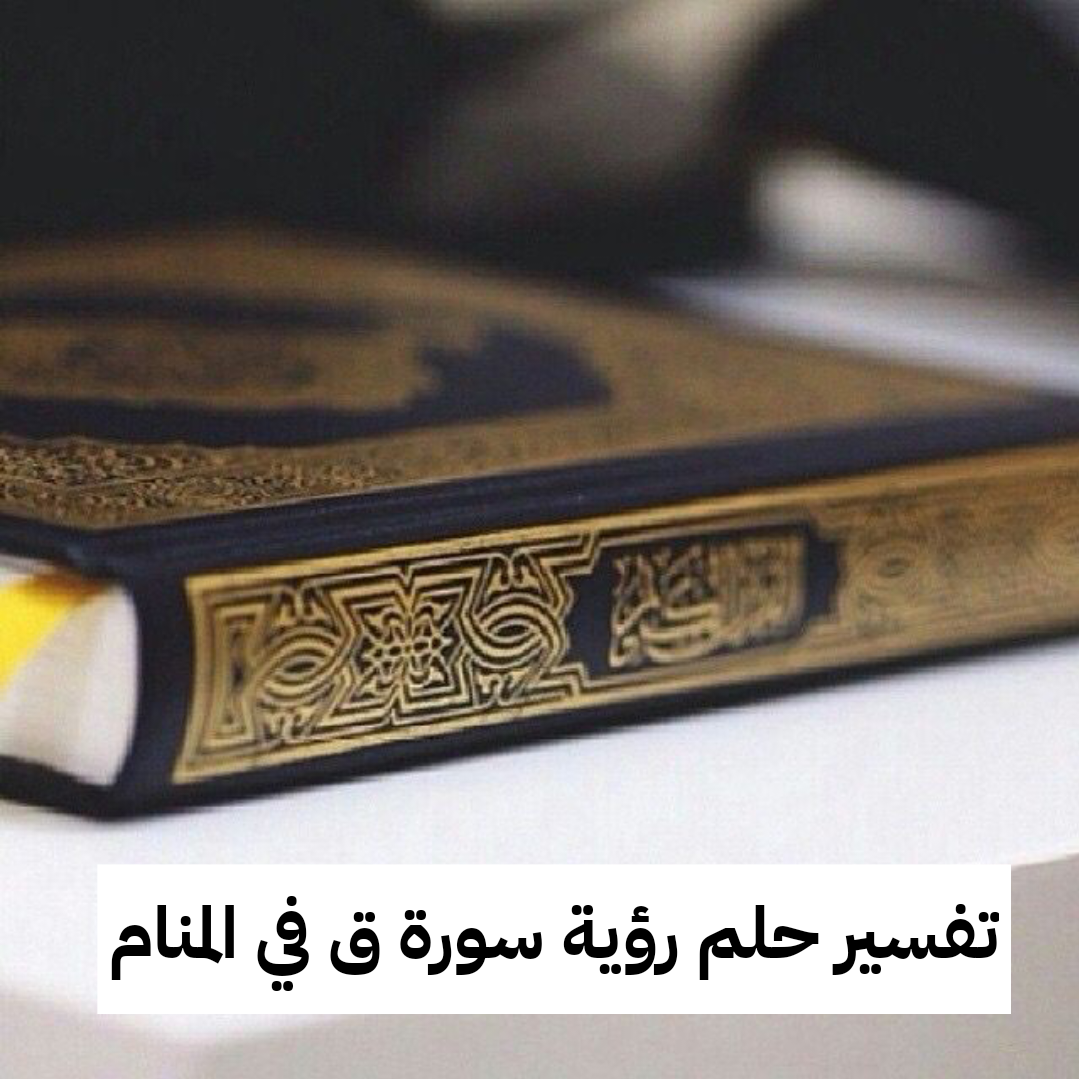 تفسير حلم رؤية سورة ق في المنام